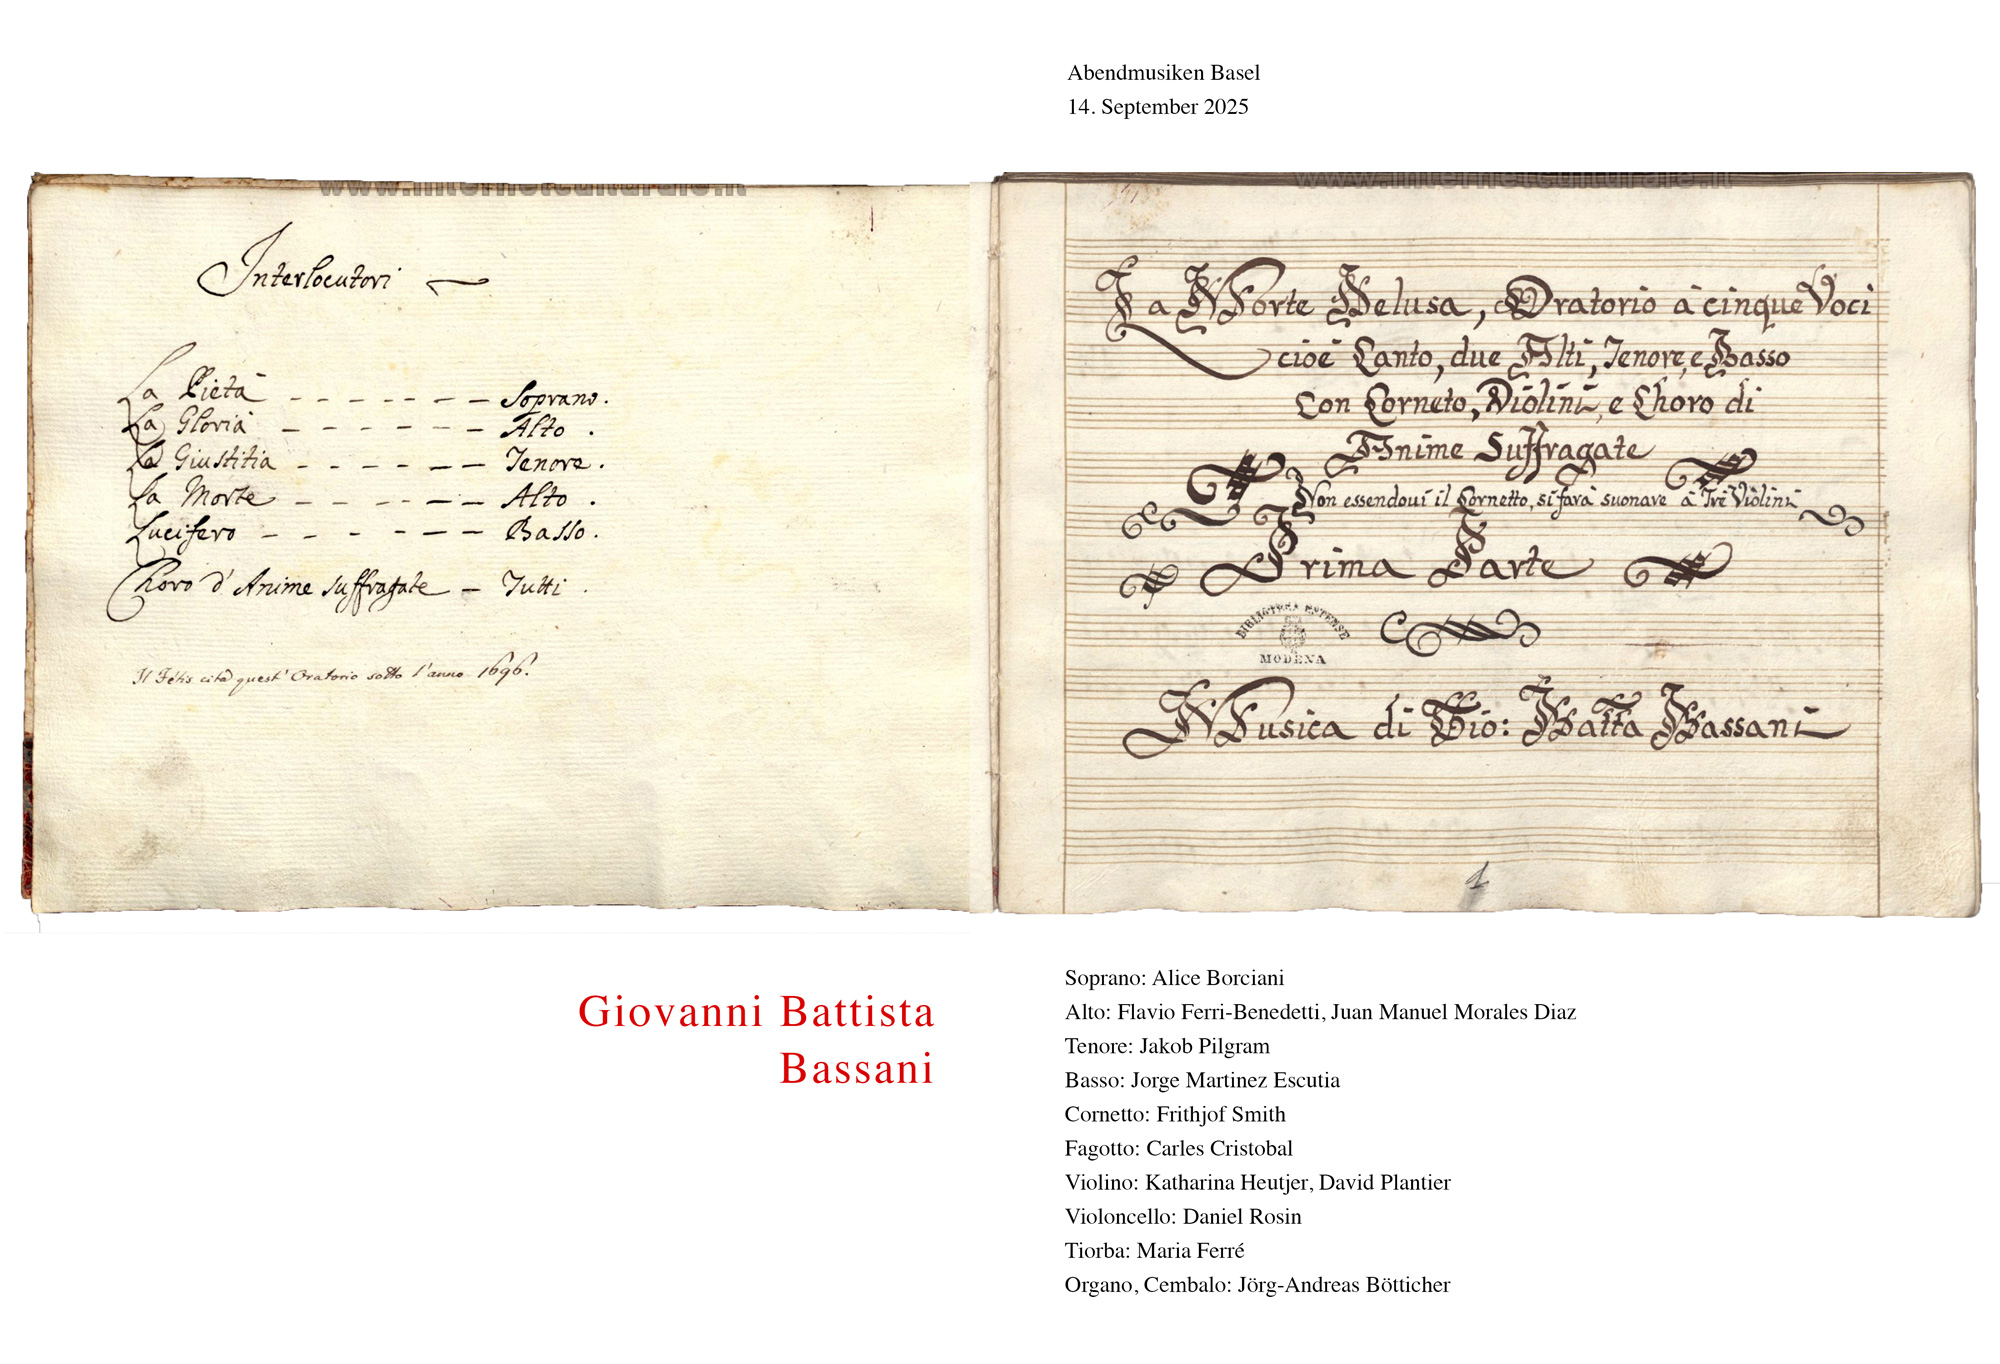 Abendmusiken Basel
14. September 2025
www.internetculturale.it
Interlocutori
La Pietà - - - - - - - Soprano.
La Gloria - - - - - - Alto .
La Giustitia - - - - - - Tenore.
La Morte - - - - - - Alto .
Lucifero - - - - - - - Basso.
Choro d'Anime suffragate - Tutti .
Il Fétis cita quest'Oratorio sotto l'anno 1696.
www.internetculturale.it
La Morte Delusa, Oratorio à cinque Voci
cioè Canto, due Alti, Tenore, e Basso
Con Corneto, Violini, e Choro di
Anime Suffragate
Non essendoui il Cornetto, si farà suonare à Trè Violini
Prima Parte
BIBLIOTECA ESTENSE
MODENA
Musica di Gio: Batta Bassani
1
Giovanni Battista
Bassani
Soprano: Alice Borciani
Alto: Flavio Ferri-Benedetti, Juan Manuel Morales Diaz
Tenore: Jakob Pilgram
Basso: Jorge Martinez Escutia
Cornetto: Frithjof Smith
Fagotto: Carles Cristobal
Violino: Katharina Heutjer, David Plantier
Violoncello: Daniel Rosin
Tiorba: Maria Ferré
Organo, Cembalo: Jörg-Andreas Bötticher